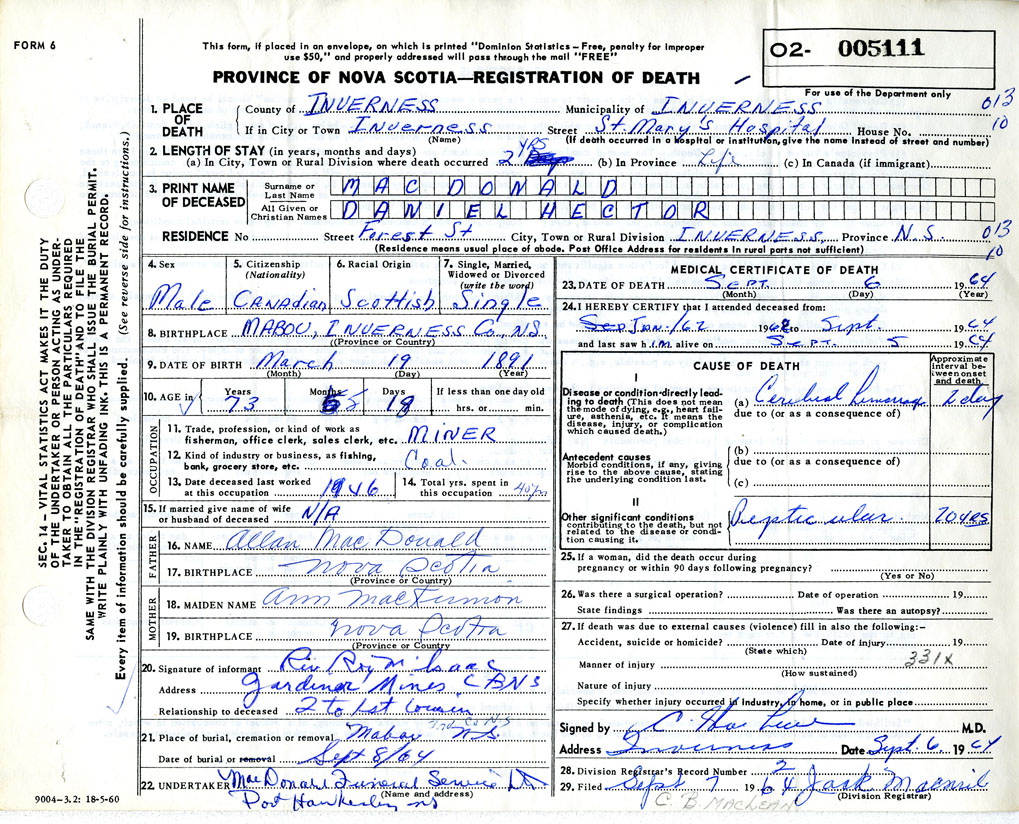 FORM 6
This form, if placed in an envelope, on which is printed "Dominion Statistics – Free, penalty for improper
use $50," and properly addressed will pass through the mail "FREE"
O2- 005111
PROVINCE OF NOVA SCOTIA—REGISTRATION OF DEATH
For use of the Department only
013
10
1. PLACE OF DEATH
County of INVERNESS Municipality of INVERNESS
If in City or Town Inverness Street St. Mary's Hospital House No.
(Name) (If death occurred in a hospital or institution, give the name instead of street and number)
2. LENGTH OF STAY (in years, months and days)
(a) In City, Town or Rural Division where death occurred 2 YRS (b) In Province Life (c) In Canada (if immigrant)
3. PRINT NAME OF DECEASED
Surname or Last Name MAC DONALD
All Given or Christian Names DANIEL HECTOR
RESIDENCE No Street Forest St City, Town or Rural Division INVERNESS, Province N.S.
013
10
(Residence means usual place of abode. Post Office Address for residents in rural parts not sufficient)
4. Sex
Male
5. Citizenship (Nationality)
CANADIAN
6. Racial Origin
Scottish
7. Single, Married, Widowed or Divorced (write the word)
Single
8. BIRTHPLACE MABOU, INVERNESS Co, NS.
(Province or Country)
9. DATE OF BIRTH March 19 1891
(Month) (Day) (Year)
10. AGE in Years Months Days If less than one day old
73 5 18 hrs. or min.
OCCUPATION
11. Trade, profession, or kind of work as
fisherman, office clerk, sales clerk, etc. MINER
12. Kind of industry or business, as fishing,
bank, grocery store, etc. Coal.
13. Date deceased last worked
at this occupation 1946
14. Total yrs. spent in
this occupation 40 yrs
15. If married give name of wife
or husband of deceased N/A
FATHER
16. NAME Allan MacDonald
17. BIRTHPLACE Nova Scotia
(Province or Country)
MOTHER
18. MAIDEN NAME Ann MacKinnon
19. BIRTHPLACE Nova Scotia
(Province or Country)
20. Signature of informant Rev Roy McIsaac
Address Gardiner Mines, CB NS
Relationship to deceased 2 to 1st Cousin
21. Place of burial, cremation or removal Mabou Inv Co NS
N.S.
Date of burial or removal Sept 8/64
22. UNDERTAKER MacDonald Funeral Service Ltd
(Name and address)
Port Hawkesbury NS
9004-3.2: 18-5-60
MEDICAL CERTIFICATE OF DEATH
23. DATE OF DEATH SEPT. 6 1964
(Month) (Day)
24. I HEREBY CERTIFY that I attended deceased from:
Sep JAN./62 1962 to Sept. 1964
and last saw him alive on SEPT. 5 1964
CAUSE OF DEATH
Approximate interval between onset and death
I
Disease or condition directly leading to death (This does not mean
the mode of dying, e.g., heart failure, asthenia, etc. It means the
disease, injury, or complication
which caused death.)
(a) Cerebral hemorrhage 1 day
due to (or as a consequence of)
Antecedent causes
Morbid conditions, if any, giving
rise to the above cause, stating
the underlying condition last.
(b)
due to (or as a consequence of)
(c)
II
Other significant conditions
contributing to the death, but not
related to the disease or condition
causing it.
Peptic ulcer. 20 YRS
25. If a woman, did the death occur during
pregnancy or within 90 days following pregnancy?
(Yes or No)
26. Was there a surgical operation? Date of operation 19
State findings Was there an autopsy?
27. If death was due to external causes (violence) fill in also the following:–
Accident, suicide or homicide? Date of injury 19
(State which)
Manner of injury 331X
(How sustained)
Nature of injury
Specify whether injury occurred in industry, in home, or in public place
Signed by M.D.
Address Inverness Date Sept. 6 1964
28. Division Registrar's Record Number 2
29. Filed Sept 7 1964 Jack
(Division Registrar)
C. B. MACLEAN
SEC. 14 – VITAL STATISTICS ACT MAKES IT THE DUTY
OF THE UNDERTAKER OR PERSON ACTING AS UNDERTAKER
TO OBTAIN ALL THE PARTICULARS REQUIRED
IN THE "REGISTRATION OF DEATH" AND TO FILE THE
SAME WITH THE DIVISION REGISTRAR WHO SHALL ISSUE THE BURIAL PERMIT.
WRITE PLAINLY WITH UNFADING INK. THIS IS A PERMANENT RECORD.
Every item of information should be carefully supplied. (See reverse side for instructions.)